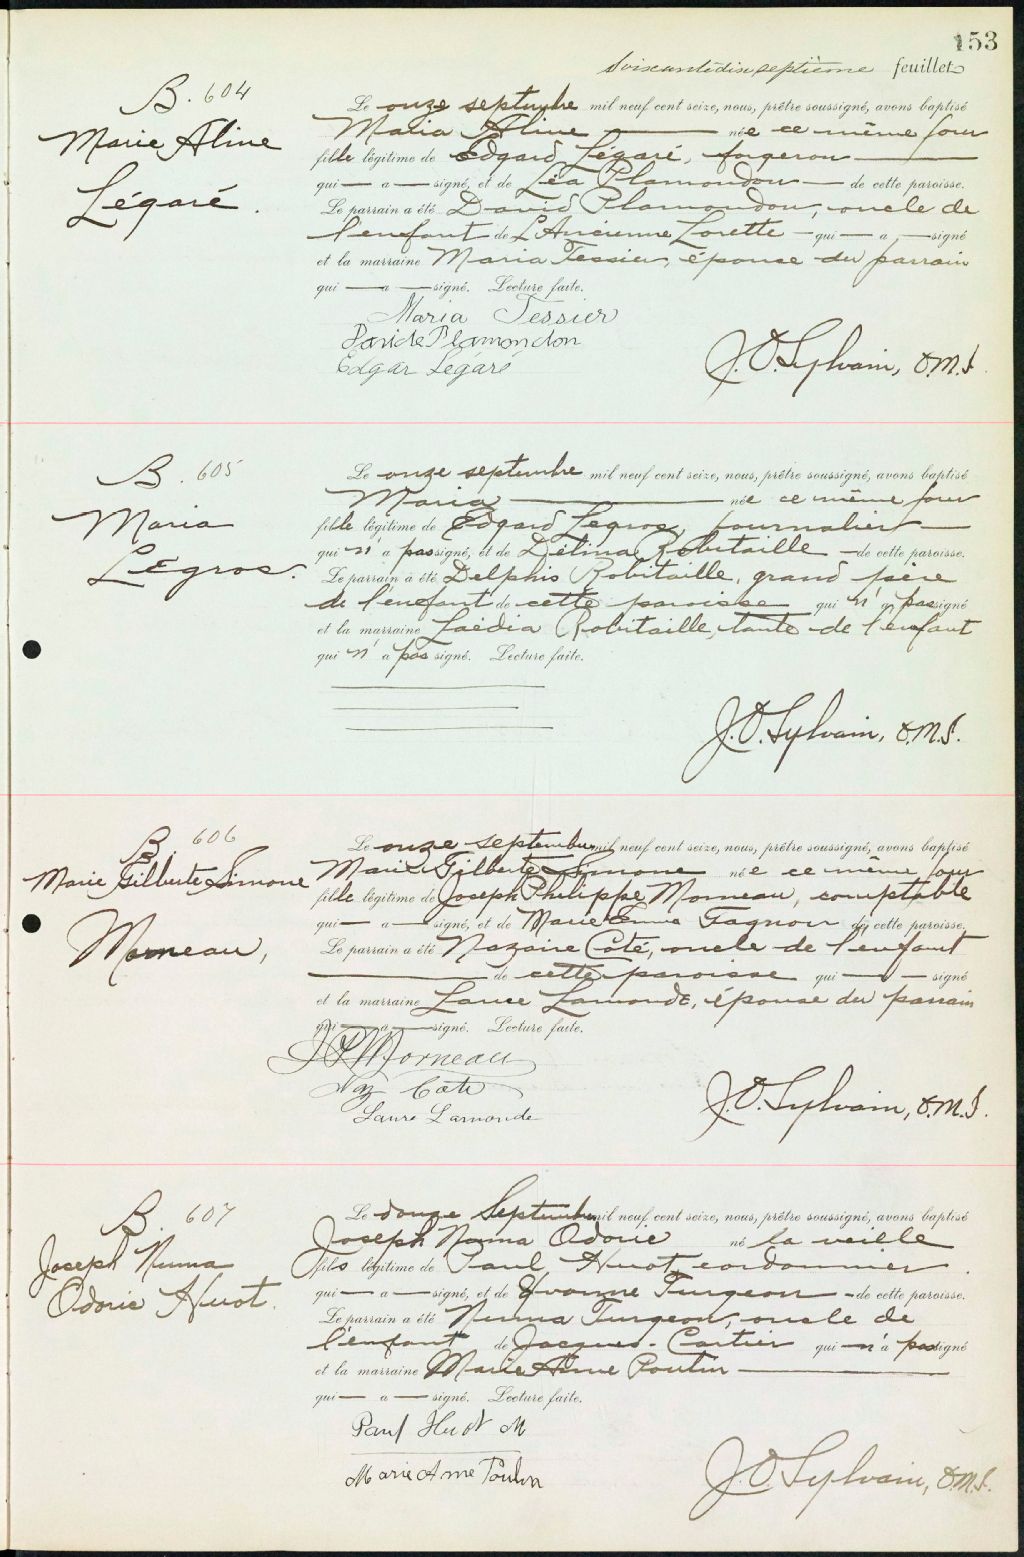 153
Soixante dix septième feuillet
B. 604
Marie Aline
Légaré.
Le onze septembre mil neuf cent seize, nous, prêtre soussigné, avons baptisé
Maria Aline née ce même jour
fille légitime de Edgard Légaré, forgeron
qui — a — signé, et de Léa Plamondon — de cette paroisse.
Le parrain a été David Plamondon, oncle de
l'enfant de L'Ancienne Lorette — qui — a — signé
et la marraine Maria Tessier, épouse du parrain
qui — a — signé. Lecture faite.
Maria Tessier
Davide Plamondon
Edgar Légaré
J.O. Sylvain, O.M.I.
B. 605
Maria
Legros.
Le onze septembre mil neuf cent seize, nous, prêtre soussigné, avons baptisé
Maria — née ce même jour
fille légitime de Edgard Legros, journalier —
qui n'a pas signé, et de Délina Robitaille — de cette paroisse.
Le parrain a été Delphis Robitaille, grand père
de l'enfant de cette paroisse qui n'a pas signé
et la marraine Laédia Robitaille, tante de l'enfant
qui n'a pas signé. Lecture faite.
J.O. Sylvain, O.M.I.
B. 606
Marie Gilberte Simone
Morneau,
Le onze septembre mil neuf cent seize, nous, prêtre soussigné, avons baptisé
Marie Gilberte Simone née ce même jour
fille légitime de Joseph Philippe Morneau, comptable
qui — a — signé, et de Marie Emma Gagnon de cette paroisse.
Le parrain a été Nazaire Côté, oncle de l'enfant
— de cette paroisse qui — a — signé
et la marraine Laure Lamonde, épouse du parrain
qui — a — signé. Lecture faite.
J P Morneau
Naz Coté
Laure Lamonde
J.O. Sylvain, O.M.I.
B. 607
Joseph Numa
Odorie Huot.
Le douze Septembre mil neuf cent seize, nous, prêtre soussigné, avons baptisé
Joseph Numa Odorie né la veille
fils légitime de Paul Huot, cordonnier.
qui — a — signé, et de Yvonne Turgeon — de cette paroisse.
Le parrain a été Numa Turgeon, oncle de
l'enfant de Jacques-Cartier qui n'a pas signé
et la marraine Marie Anne Poulin —
qui — a — signé. Lecture faite.
Paul Huot
Marie Anne Poulin
J.O. Sylvain, O.M.I.